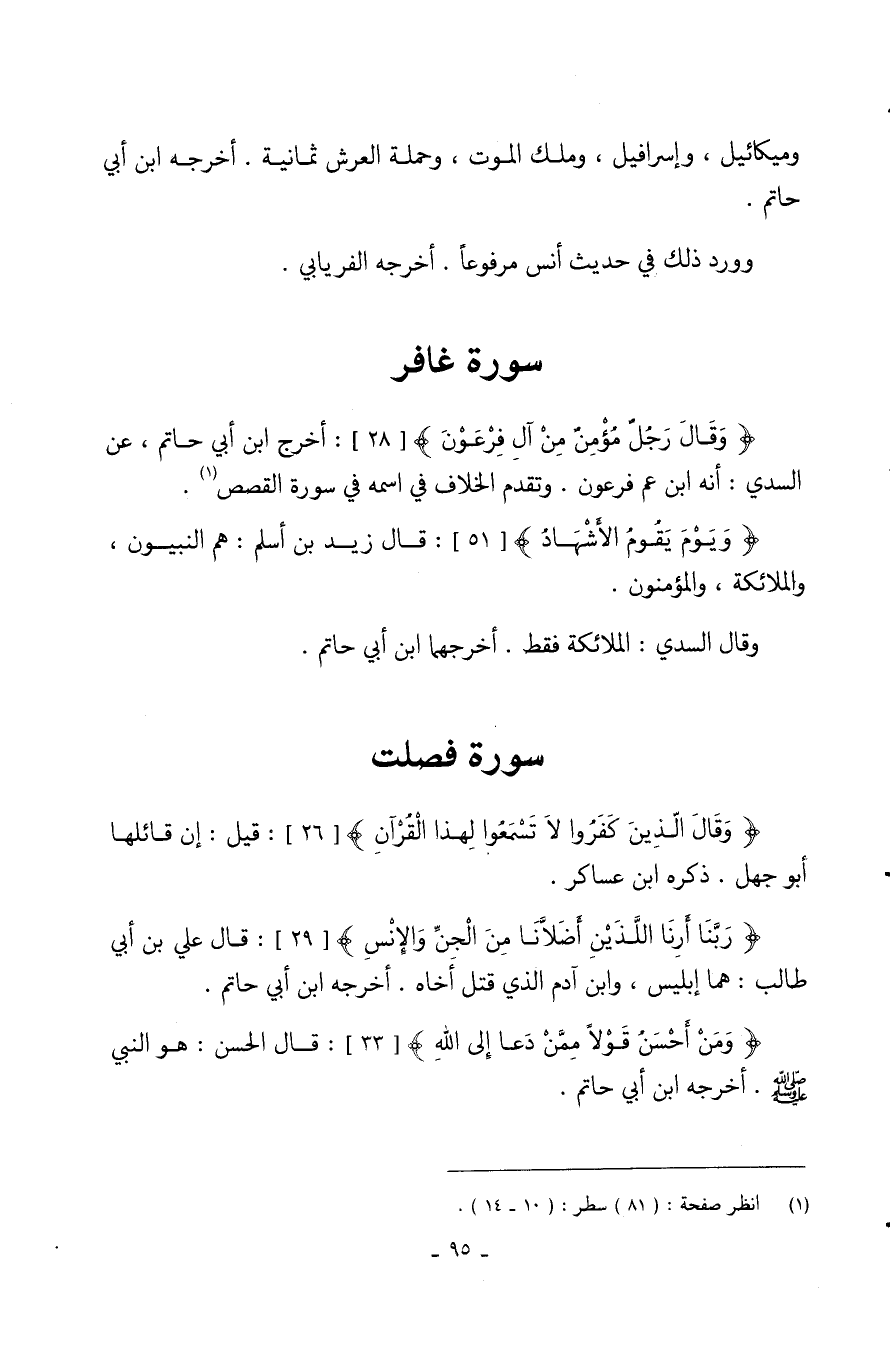 وميكائيل ، وإسرافيل ، وملك الموت ، وحملة العرش ثمانية . أخرجه ابن أبي
حاتم .
وورد ذلك في حديث أنس مرفوعاً . أخرجه الفريابي .
سورة غافر
﴿ وَقَالَ رَجُلٌ مُؤْمِنٌ مِنْ آلِ فِرْعَوْنَ ﴾ [ ٢٨ ] : أخرج ابن أبي حاتم ، عن
السدي : أنه ابن عم فرعون . وتقدم الخلاف في اسمه في سورة القصص(١) .
﴿ وَيَوْمَ يَقُومُ الأَشْهَادُ ﴾ [ ٥١ ] : قال زيد بن أسلم : هم النبيون ،
والملائكة ، والمؤمنون .
وقال السدي : الملائكة فقط . أخرجها ابن أبي حاتم .
سورة فصلت
﴿ وَقَالَ الَّذِينَ كَفَرُوا لاَ تَسْمَعُوا لِهذا الْقُرْآنِ ﴾ [ ٢٦ ] : قيل : إن قائلها
أبو جهل . ذكره ابن عساكر .
﴿ رَبَّنَا أَرِنَا اللَّذَيْنِ أَضَلاَّنَا مِنَ الْجِنِّ وَالإِنْسِ ﴾ [ ٢٩ ] : قال علي بن أبي
طالب : هما إبليس ، وابن آدم الذي قتل أخاه . أخرجه ابن أبي حاتم .
﴿ وَمَنْ أَحْسَنُ قَوْلاً مِمَّنْ دَعا إلى اللهِ ﴾ [ ٣٣ ] : قال الحسن : هو النبي
ﷺ . أخرجه ابن أبي حاتم .
(١) انظر صفحة : ( ٨١ ) سطر : ( ١٠ ـ ١٤ ) .
ـ ٩٥ ـ